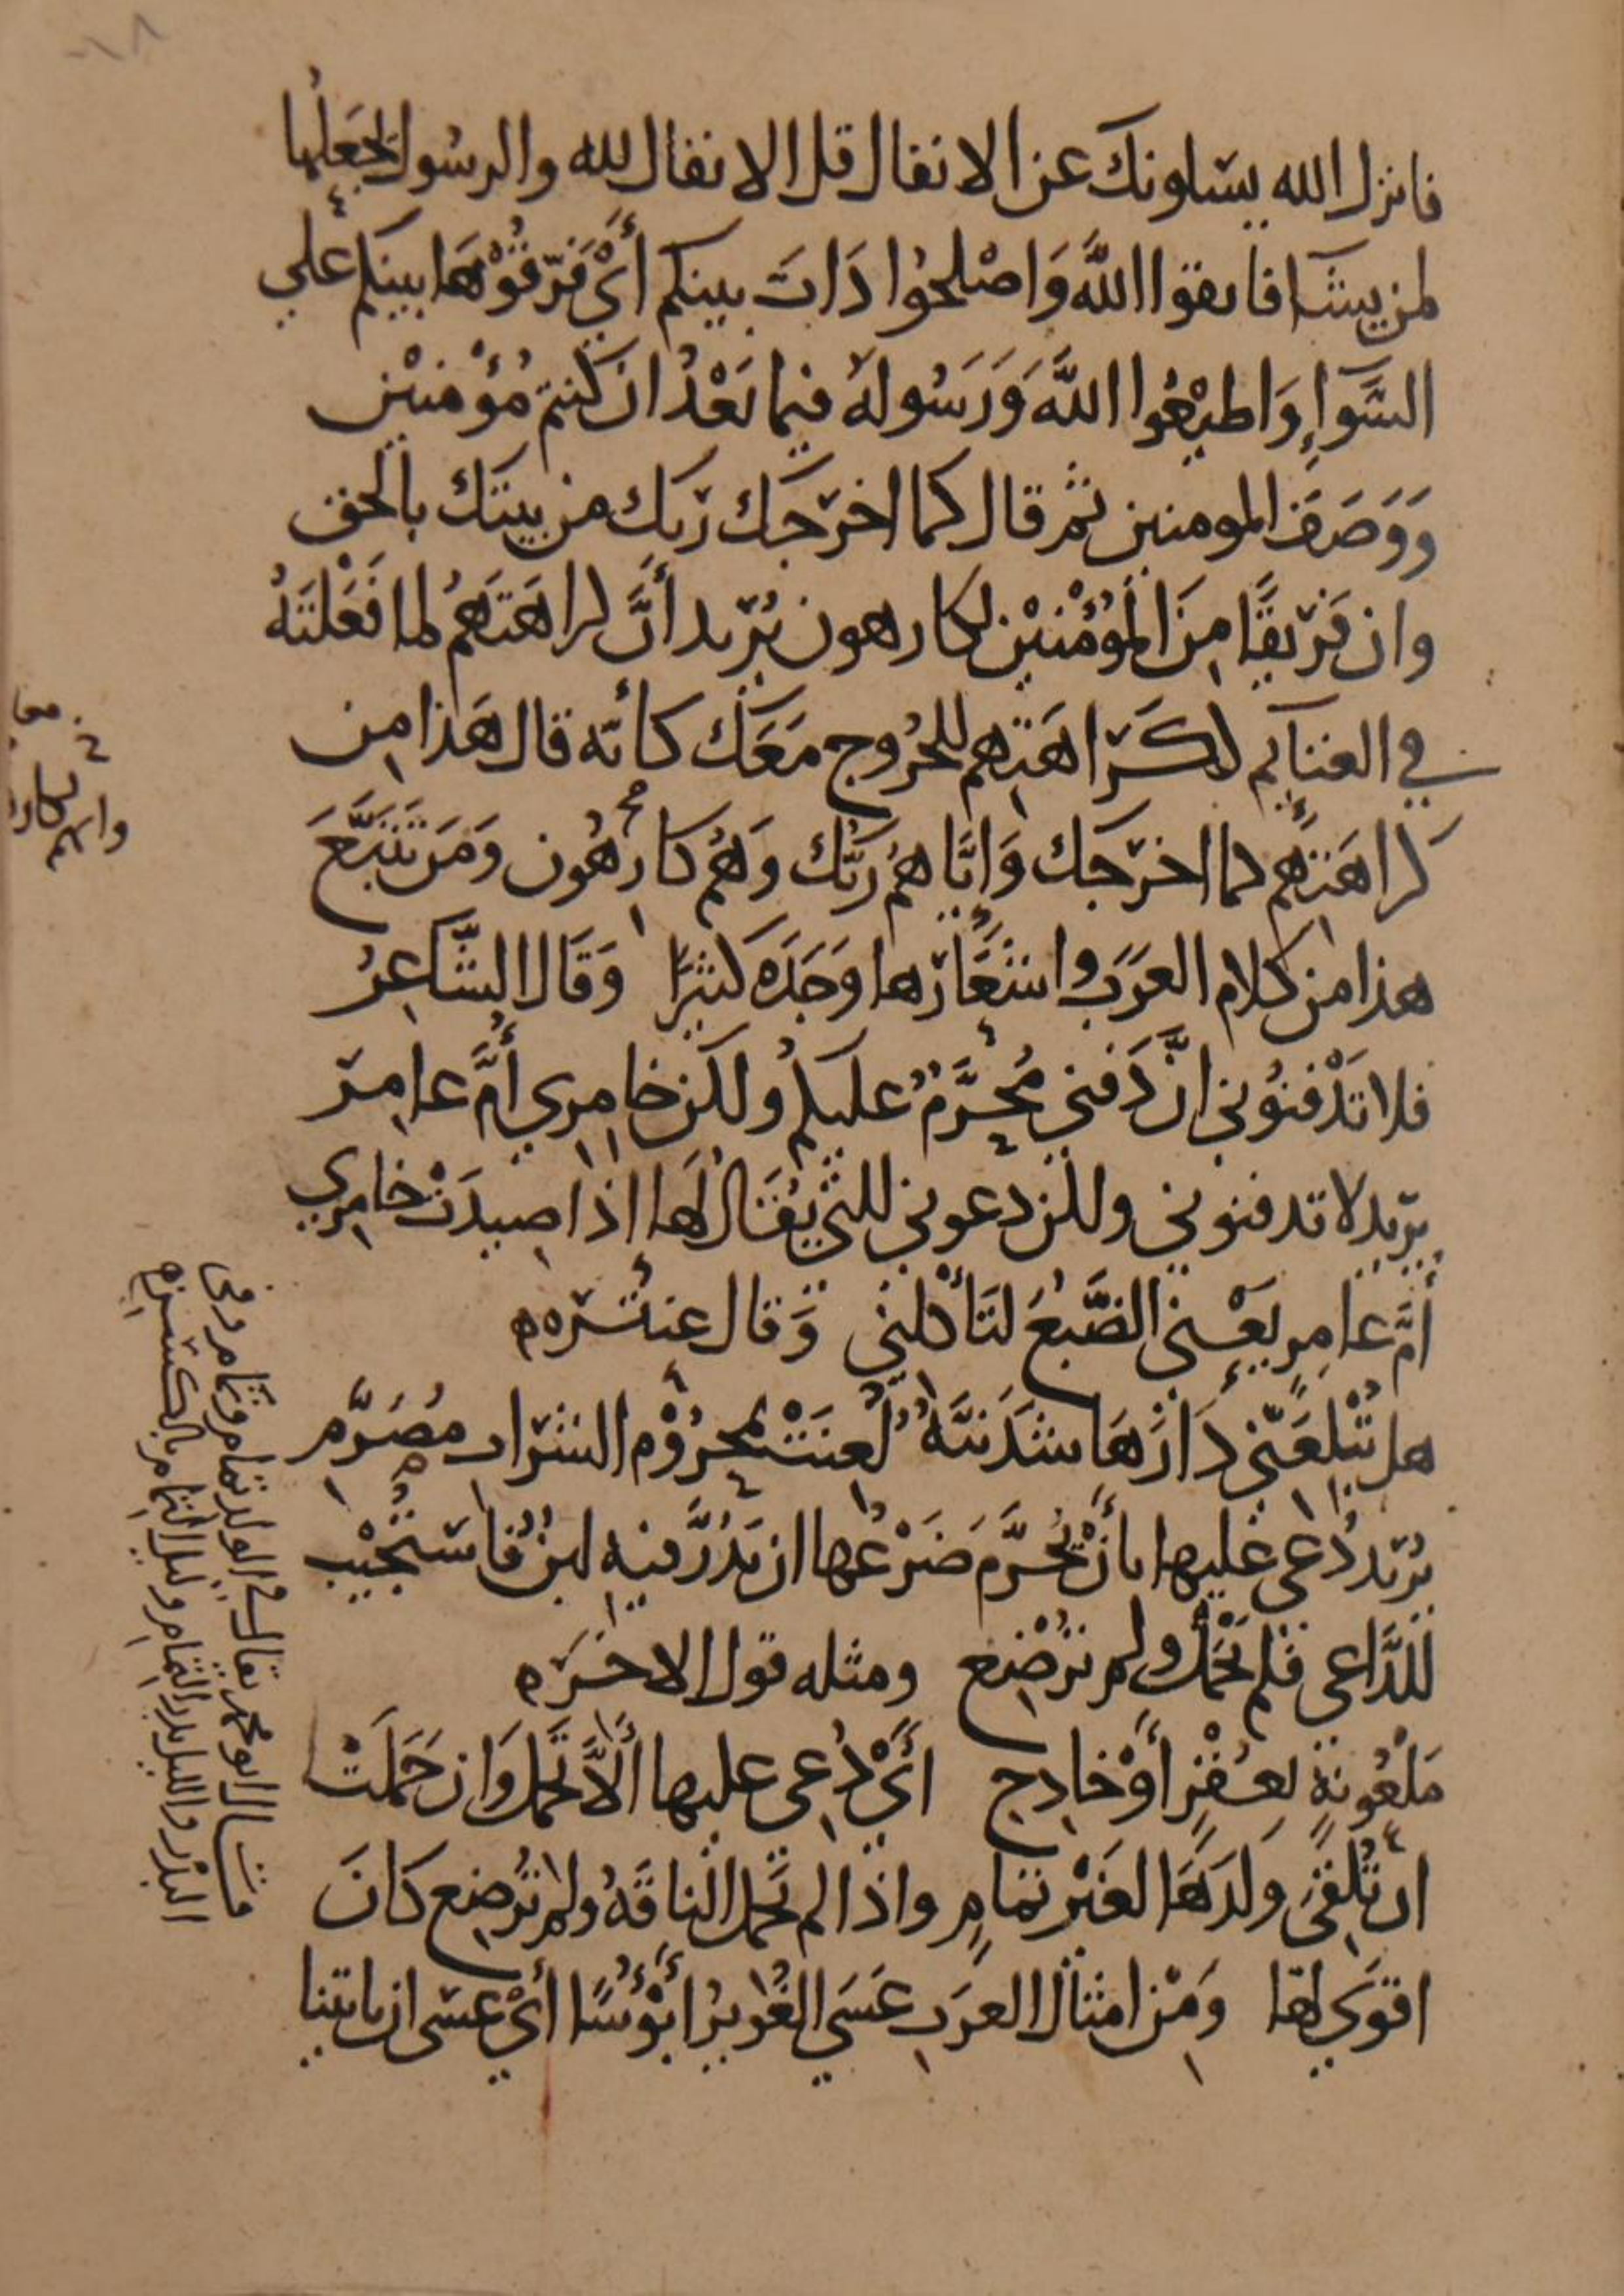 فانزل الله يسلونك عن الانفال قل الانفال لله والرسول يجعلها
لمن يشآ فاتقوا اللَّه وَاصْلحُوا ذَاتَ بينكم أَيْ فَرّقُوْهَا بينكم علي
السَّوآءِ وَاطيْعُوا اللَّه وَرَسُولهُ فيما بَعْدُ ان كنتم مُؤْمنيْن
وَوَصَفَ المومنين ثم قال كما اخرَجَك ربّك من بيتك بالحق
وان فَرِيقًا مِنَ المُؤْمنيْن لكارهون يُرِيد أنَّ كراهَتَهمُ لما فَعَلتَهُ
في الغنآيم ككَرَاهَتِهم للخُرُوج مَعَك كأنّه قال هَذا مِن
كراهَتِهِم كما اخرَجَك وَايَّاهمُ ربّك وَهُم كارِهُون وَمَن تَتَبَّعَ
هذا من كلام العَرَب واشعَارَها وَجَدَه كثيرًا وَقَال الشَّاعِرُ
فلا تَدْفنُوني انَّ دَفني مُحَرَّمٌ عليكمُ ولكن خامِرِي أُمَّ عامِر
يريد لا تدفنوني ولكن دعوني للتي يُقَال لَها اذا صِيدَتْ خامِرِي
أُمَّ عامِرٍ يَعْني الضَّبُعَ لتَأْكلني وَقال عنتره
هل تُبْلِغَنّي دَارَهَا شَدَنيَّةٌ لُعِنَتْ بمحرُوْم الشراب مُصَرَّم
يُرِيد دُعي عَليها بأَنْ يُحَرَّم ضَرْعُها ان يَدُرَّ فيهِ لبنٌ فاستُجيْب
للدَّاعي فلم تَحْمِل ولم تُرْضِع ومثله قول الاخر
مَلْعُونةٍ بعُقْرٍ أَوْ خادِج أَيْ دُعي عليها أَلَّا تَحمل وَان حَمَلَتْ
ان تُلْقيَ وَلدَهَا لغَيْر تمامٍ واذا لم تَحمل الناقَهُ ولم تُرْضِع كانَ
اقوَي لها وَمْن امثال العرَب عَسَي الغُوَيرُ أَبْؤُسًا أَيْ عسى ان ياتينا
قال ابو محمد يقال في الولد تمام وتمام وفى
البدر والليل بدر التمام وليل التمام بالكسر